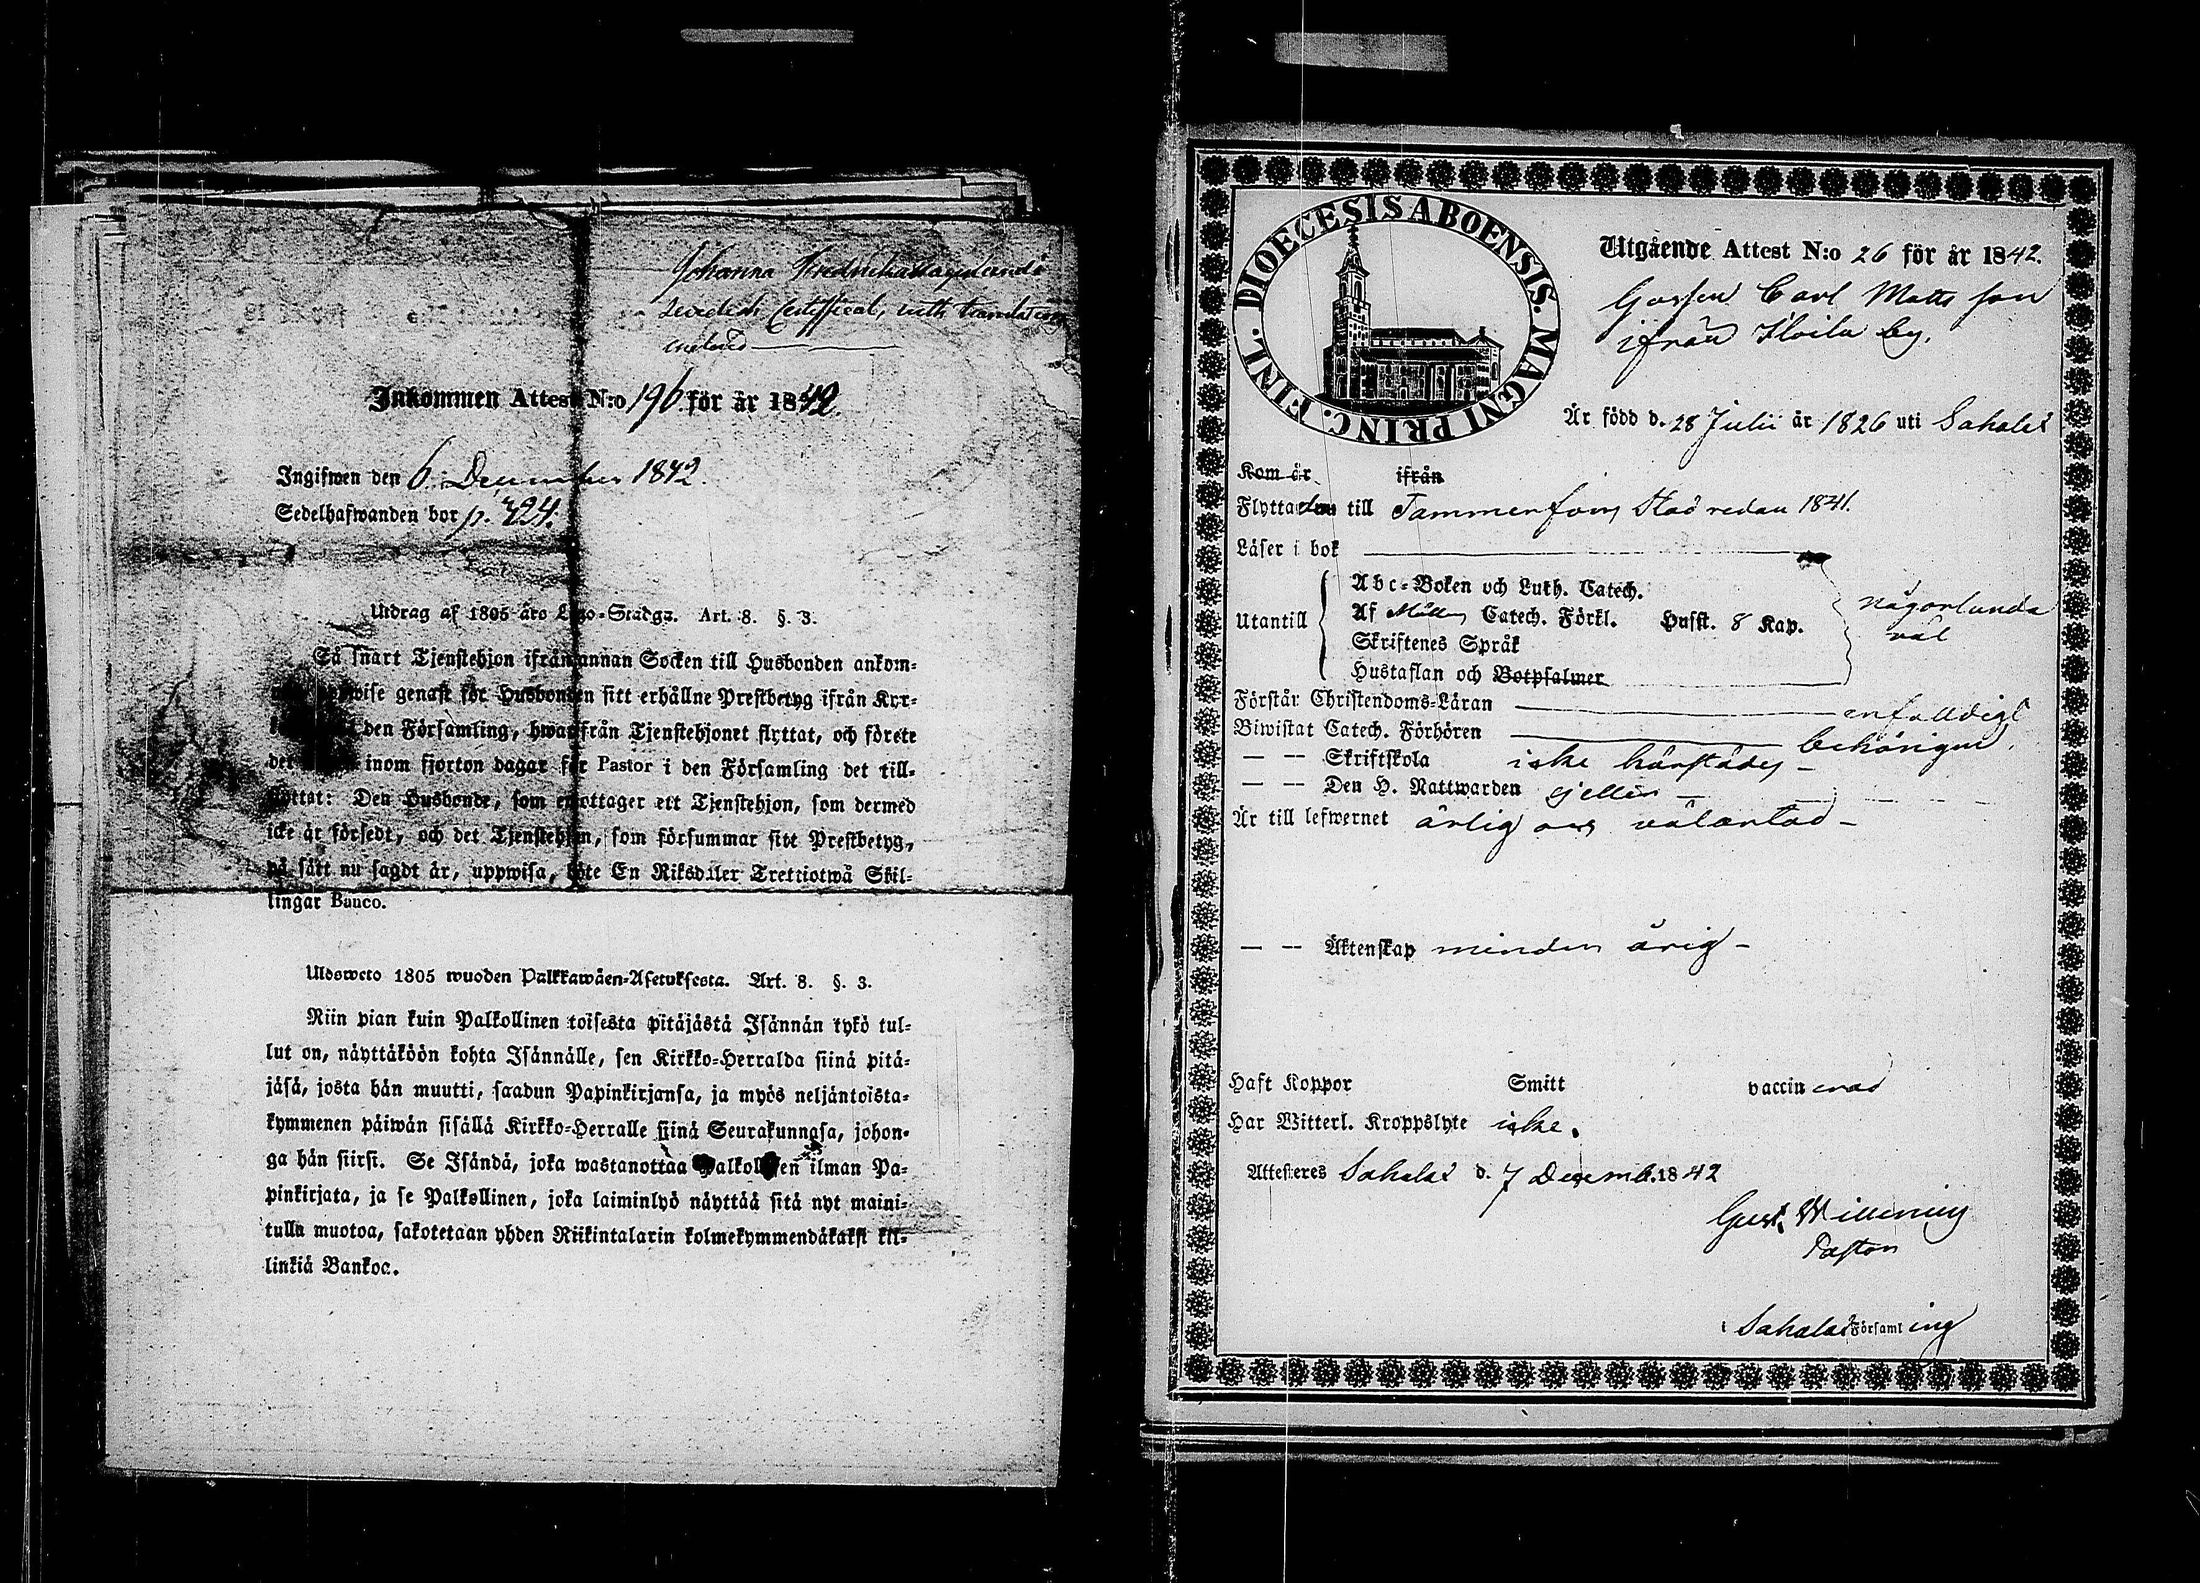 Johanna Fredrika
Swedish Certificat, with translation
Inkommen Attest N:o 196. för år 1842.
Ingifwen den 6. December 1842.
Sedelhafwanden bor p. 424.
Utdrag af 1805 års Lego-Stadga. Art. 8. §. 3.
Så snart Tjenstehjon ifrån annan Socken till Husbonden ankom-
wise genast för Husbonden sitt erhållne Prestbetyg ifrån Kyr-
den Församling, hwarifrån Tjenstehjonet flyttat, och förete
det inom fjorton dagar för Pastor i den Församling det till-
flyttat: Den Husbonde, som emottager ett Tjenstehjon, som dermed
icke är försedt, och det Tjenstehjon, som försummar sitt Prestbetyg,
på sätt nu sagdt är, uppwisa, böte En Riksdaler Trettiotwå Skil-
lingar Banco.
Ulosweto 1805 wuoden Palkkawäen-Asetuksesta. Art. 8. §. 3.
Niin pian kuin Palkollinen toisesta pitäjästä Isännän tykö tul-
lut on, näyttäköön kohta Isännälle, sen Kirkko-Herralda siinä pitä-
jäsä, josta hän muutti, saadun Papinkirjansa, ja myös neljäntoista-
kymmenen päiwän sisällä Kirkko-Herralle siinä Seurakunnasa, johon-
ga hän siirsi. Se Isändä, joka wastanottaa Palkollisen ilman Pa-
pinkirjata, ja se Palkollinen, joka laiminlyö näyttää sitä nyt maini-
tulla muotoa, sakotetaan yhden Riikintalarin kolmekymmendäkaksi kil-
linkiä Bankoa.
DIOECESIS ABOENSIS. MAGNI PRINC. FINL.
Utgående Attest N:o 26 för år 1842.
Gossen Carl Matts son
ifrån Hoila by.
Är född d. 28 Julii år 1826 uti Sahalax
Kom år ifrån
Flyttade till Tammerfors Stad redan 1841.
Läser i bok
Utantill
Abc-Boken och Luth. Catech.
Af Möllers Catech. Förkl. Husst. 8 Kap.
Skriftenes Språk
Hustaflan och Botpsalmer
någorlunda
väl
Förstår Christendoms-Läran enfaldigt
Biwistat Catech. Förhören behörigen
— — Skriftskola icke härstädes —
— — Den H. Nattwarden ej heller —
Är till lefwernet ärlig och välartad —
— — Äktenskap minder årig —
Haft Koppor Smitt vaccinerad
Har Witterl. Kroppslyte icke.
Attesteres Sahalax d. 7 Decemb. 1842
Gust. Willenius
Pastor
i Sahalax Församling